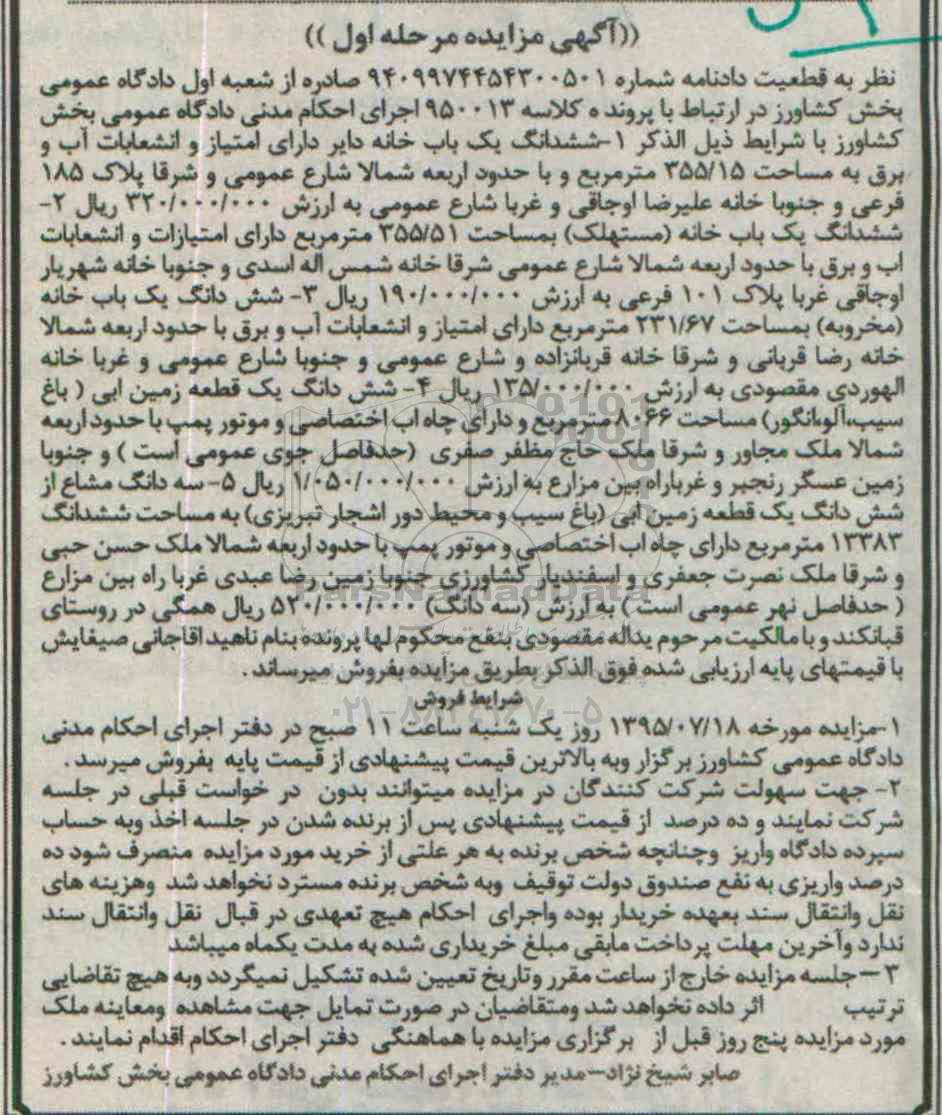 ((آگهی مزایده مرحله اول))
نظر به قطعیت دادنامه شماره ۹۴۰۹۹۷۴۴۵۴۳۰۰۵۰۱ صادره از شعبه اول دادگاه عمومی
بخش کشاورز در ارتباط با پرونده کلاسه ۹۵۰۰۱۳ اجرای احکام مدنی دادگاه عمومی بخش
کشاورز با شرایط ذیل الذکر ۱-ششدانگ یک باب خانه دایر دارای امتیاز و انشعابات آب و
برق به مساحت ۳۵۵/۱۵ مترمربع و با حدود اربعه شمالا شارع عمومی و شرقا پلاک ۱۸۵
فرعی و جنوبا خانه علیرضا اوجاقی و غربا شارع عمومی به ارزش ۳۲۰/۰۰۰/۰۰۰ ریال ۲-
ششدانگ یک باب خانه (مستهلک) بمساحت ۳۵۵/۵۱ مترمربع دارای امتیازات و انشعابات
اب و برق با حدود اربعه شمالا شارع عمومی شرقا خانه شمس اله اسدی و جنوبا خانه شهریار
اوجاقی غربا پلاک ۱۰۱ فرعی به ارزش ۱۹۰/۰۰۰/۰۰۰ ریال ۳- شش دانگ یک باب خانه
(مخروبه) بمساحت ۲۳۱/۶۷ مترمربع دارای امتیاز و انشعابات آب و برق با حدود اربعه شمالا
خانه رضا قربانی و شرقا خانه قربانزاده و شارع عمومی و جنوبا شارع عمومی و غربا خانه
الهوردی مقصودی به ارزش ۱۳۵/۰۰۰/۰۰۰ ریال ۴- شش دانگ یک قطعه زمین ابی ( باغ
سیب،آلو،انگور) مساحت ۸۰۶۶ مترمربع و دارای چاه اب اختصاصی و موتور پمپ با حدود اربعه
شمالا ملک مجاور و شرقا ملک حاج مظفر صفری (حدفاصل جوی عمومی است ) و جنوبا
زمین عسگر رنجبر و غرباراه بین مزارع به ارزش ۱/۰۵۰/۰۰۰/۰۰۰ ریال ۵- سه دانگ مشاع از
شش دانگ یک قطعه زمین ابی (باغ سیب و محیط دور اشجار تبریزی) به مساحت ششدانگ
۱۳۳۸۳ مترمربع دارای چاه اب اختصاصی و موتور پمپ با حدود اربعه شمالا ملک حسن حبی
و شرقا ملک نصرت جعفری و اسفندیار کشاورزی جنوبا زمین رضا عبدی غربا راه بین مزارع
( حدفاصل نهر عمومی است ) به ارزش (سه دانگ) ۵۲۰/۰۰۰/۰۰۰ ریال همگی در روستای
قبانکند و با مالکیت مرحوم یداله مقصودی بنفع محکوم لها پرونده بنام ناهید اقاجانی صیغایش
با قیمتهای پایه ارزیابی شده فوق الذکر بطریق مزایده بفروش میرساند .
شرایط فروش
۱-مزایده مورخه ۱۳۹۵/۰۷/۱۸ روز یک شنبه ساعت ۱۱ صبح در دفتر اجرای احکام مدنی
دادگاه عمومی کشاورز برگزار وبه بالاترین قیمت پیشنهادی از قیمت پایه بفروش میرسد .
۲- جهت سهولت شرکت کنندگان در مزایده میتوانند بدون در خواست قبلی در جلسه
شرکت نمایند و ده درصد از قیمت پیشنهادی پس از برنده شدن در جلسه اخذ وبه حساب
سپرده دادگاه واریز وچنانچه شخص برنده به هر علتی از خرید مورد مزایده منصرف شود ده
درصد واریزی به نفع صندوق دولت توقیف وبه شخص برنده مسترد نخواهد شد وهزینه های
نقل وانتقال سند بعهده خریدار بوده واجرای احکام هیچ تعهدی در قبال نقل وانتقال سند
ندارد وآخرین مهلت پرداخت مابقی مبلغ خریداری شده به مدت یکماه میباشد
۳ –جلسه مزایده خارج از ساعت مقرر وتاریخ تعیین شده تشکیل نمیگردد وبه هیچ تقاضایی
ترتیب اثر داده نخواهد شد ومتقاضیان در صورت تمایل جهت مشاهده ومعاینه ملک
مورد مزایده پنج روز قبل از برگزاری مزایده با هماهنگی دفتر اجرای احکام اقدام نمایند .
صابر شیخ نژاد–مدیر دفتر اجرای احکام مدنی دادگاه عمومی بخش کشاورز
ParsNamadData